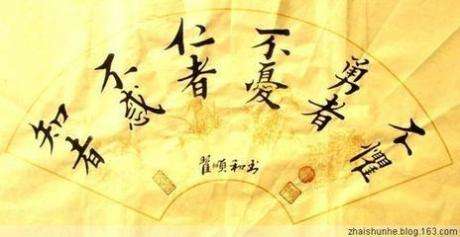 知者
不惑
仁者
不憂
勇者
不懼
翟順和书
zhaishunhe.blog.163.com